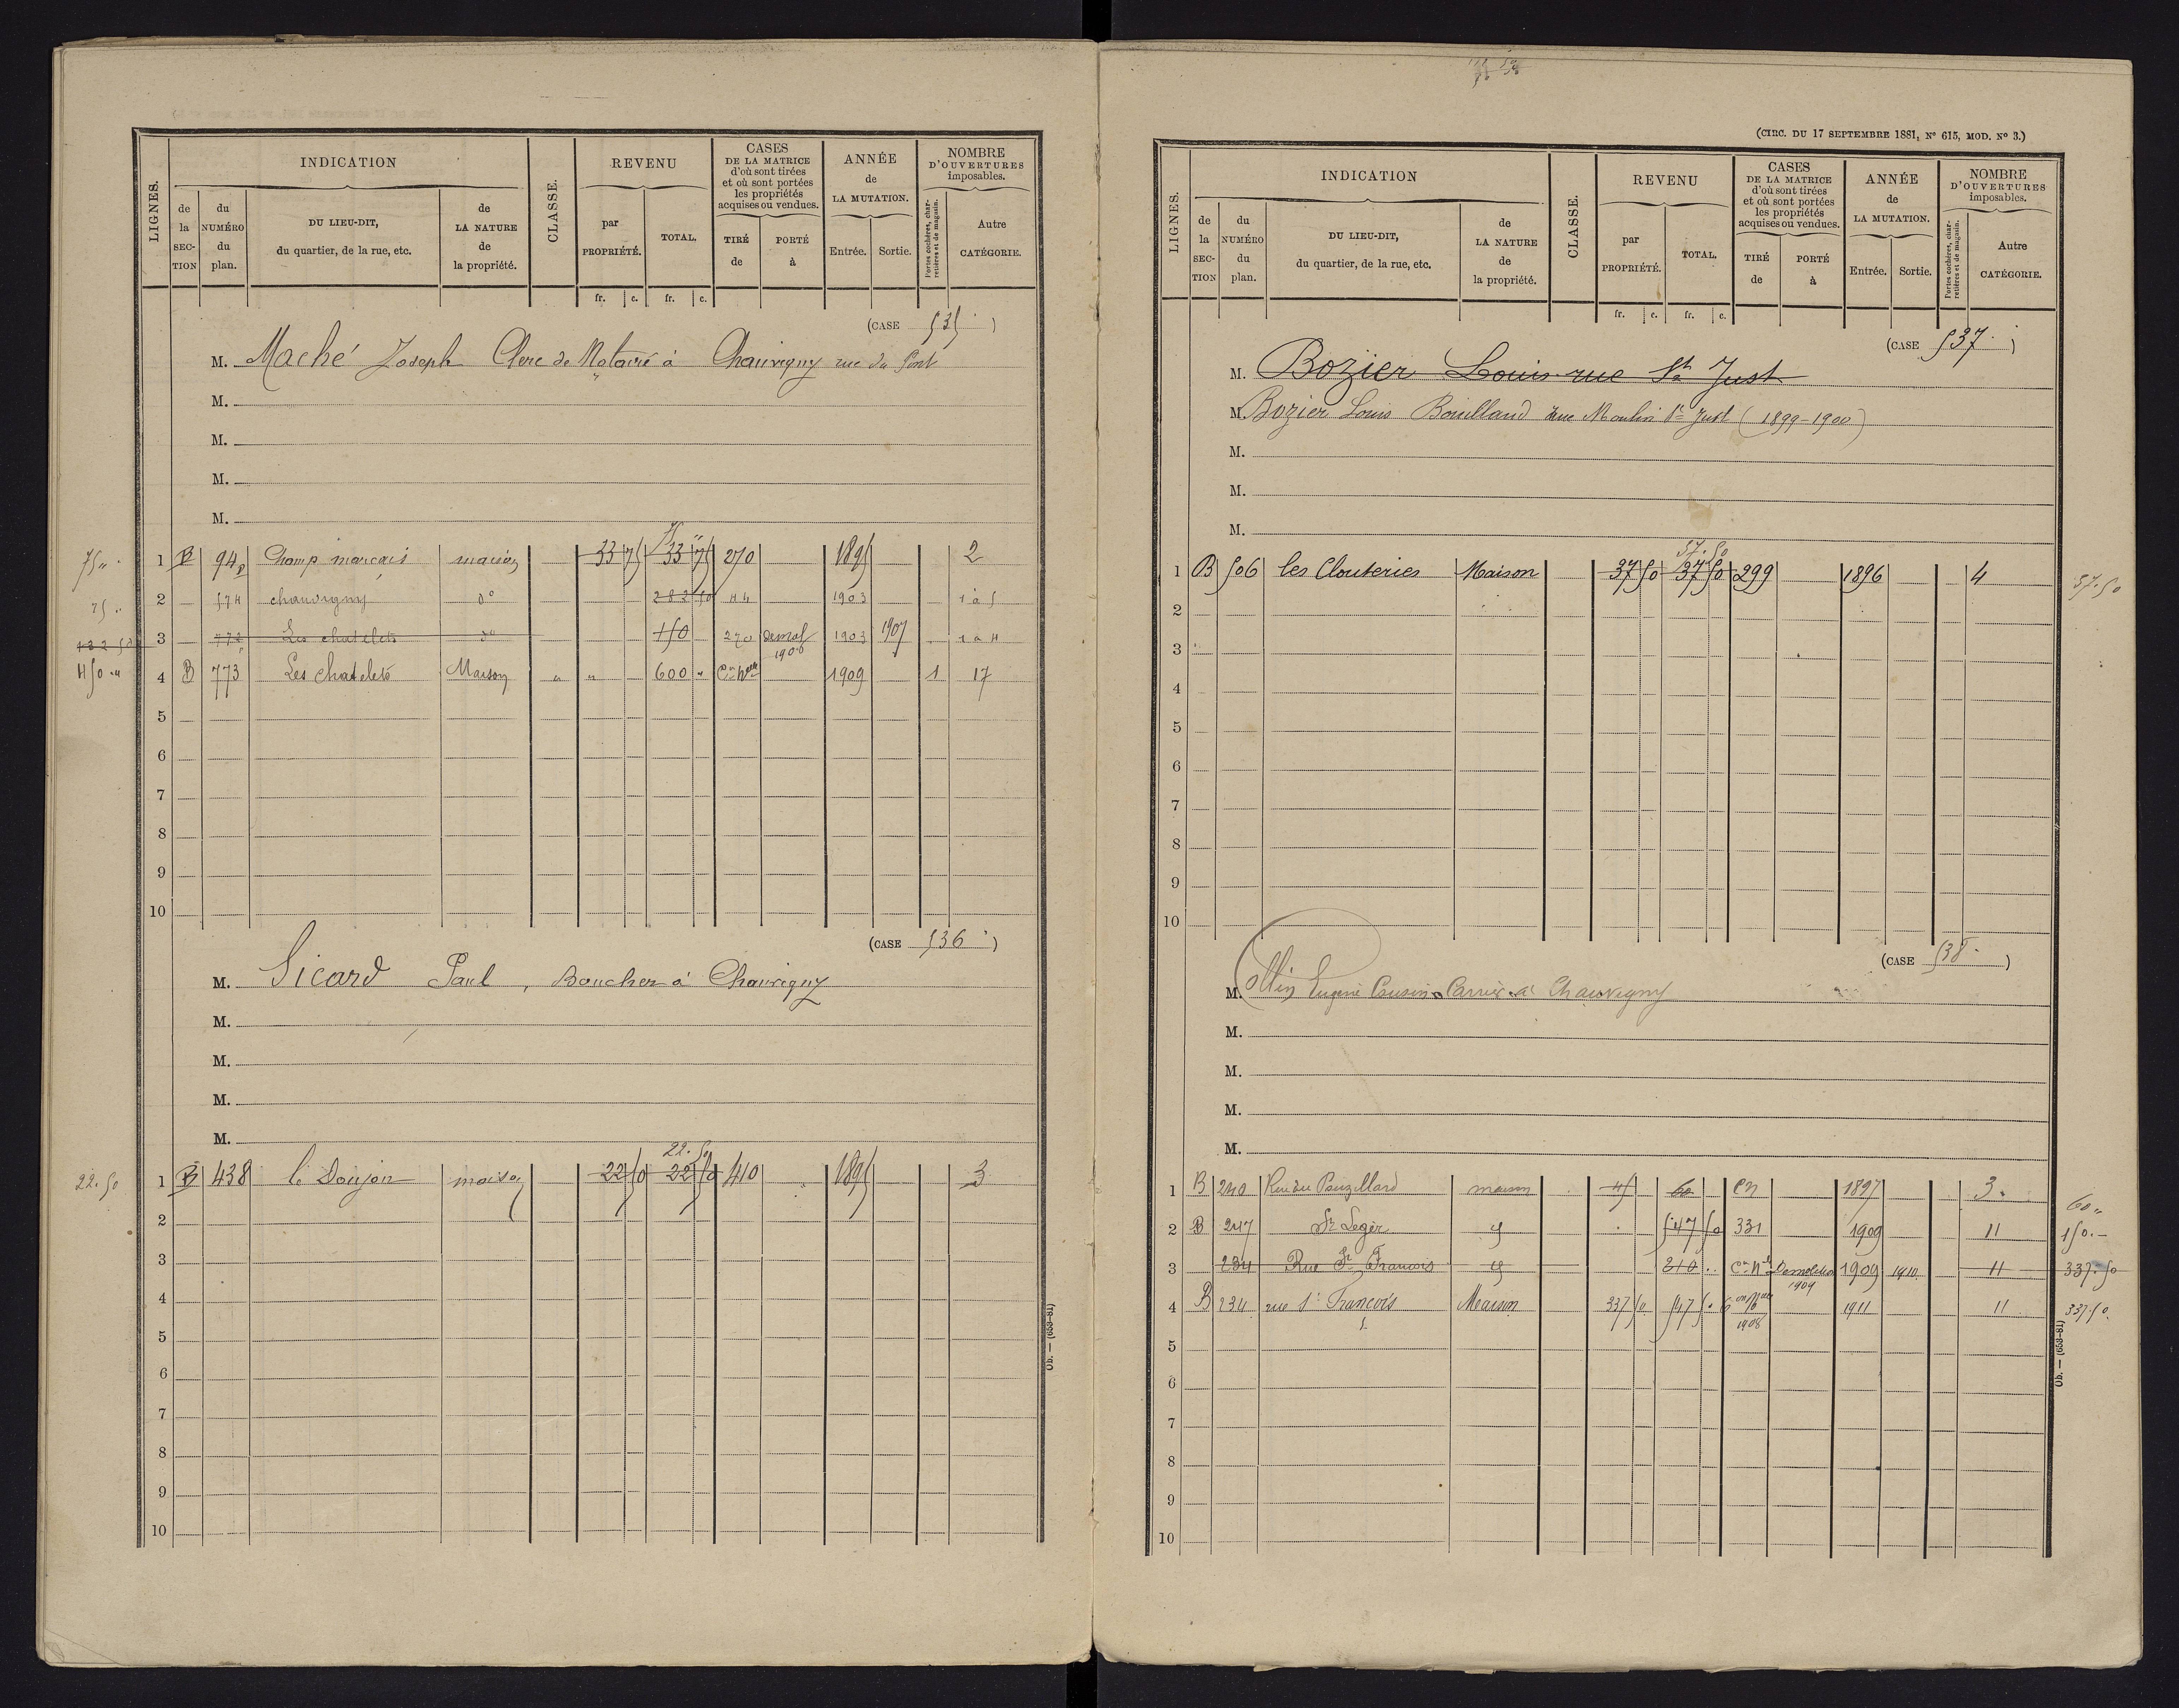 LIGNES.
INDICATION
de la SECTION
du NUMÉRO du plan.
DU LIEU-DIT, du quartier, de la rue, etc.
de LA NATURE de la propriété.
CLASSE.
REVENU
par PROPRIÉTÉ.
TOTAL.
CASES DE LA MATRICE d'où sont tirées et où sont portées les propriétés acquises ou vendues.
TIRÉ de
PORTÉ à
ANNÉE de LA MUTATION.
Entrée.
Sortie.
NOMBRE D'OUVERTURES imposables.
Portes cochères, charretières et de magasin.
Autre CATÉGORIE.
fr. c. fr. c.
(CASE 535)
M. Maché Joseph Clerc de Notaire à Chauvigny rue du Pont
M.
M.
M.
M.
75 "
75 "
1 B 94p Champ marcais maison 33 75 33 75 270 1895 2
25 " 2 574 chauvigny do 282 50 44 1903 1 à 5
132 50 3 772 Les chatelets do 150 270 demol 1906 1903 1907 1 à 4
450 " 4 B 773 Les chatelets Maison " " 600 " Con Nelle 1909 1 17
5
6
7
8
9
10
(CASE 536)
M. Sicard Paul, Boucher à Chauvigny
M.
M.
M.
M.
22.50
22.50 1 B 438 le Donjon maison 22 50 22 50 410 1895 3
2
3
4
5
6
7
8
9
10
Ob. — (653-81)
(CIRC. DU 17 SEPTEMBRE 1881, N° 615, MOD. N° 3.)
LIGNES.
INDICATION
de la SECTION
du NUMÉRO du plan.
DU LIEU-DIT, du quartier, de la rue, etc.
de LA NATURE de la propriété.
CLASSE.
REVENU
par PROPRIÉTÉ.
TOTAL.
CASES DE LA MATRICE d'où sont tirées et où sont portées les propriétés acquises ou vendues.
TIRÉ de
PORTÉ à
ANNÉE de LA MUTATION.
Entrée.
Sortie.
NOMBRE D'OUVERTURES imposables.
Portes cochères, charretières et de magasin.
Autre CATÉGORIE.
fr. c. fr. c.
(CASE 537)
M. Bozier Louis rue St Just
M. Bozier Louis Bouilland rue Moulin St Just (1899-1900)
M.
M.
M.
37.50
1 B 506 les Clouteries Maison 37 50 37 50 299 1896 4 37.50
2
3
4
5
6
7
8
9
10
(CASE 538)
M. Ollin Eugène Cousin Carrier à Chauvigny
M.
M.
M.
M.
1 B 240 Rue du Pouzillard maison 45 60 CN 1897 3 60 "
2 B 247 St Leger 547 50 331 1909 11 150.-
3 234 Rue St Francois 210 Con Nle Demolition 1909 1909 1910 11 337.50
4 B 234 rue St Francois Maison 337 50 547 50 Con Nelle 1908 1911 11 337.50
5
6
7
8
9
10
Ob. — (653-81)